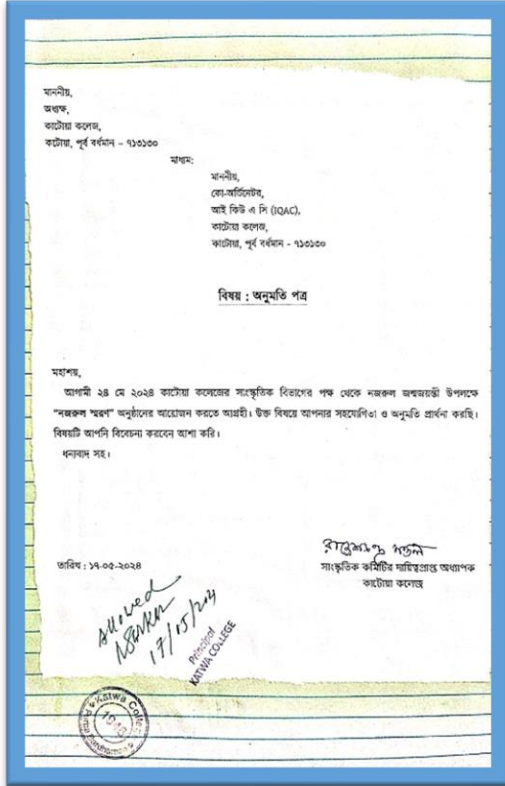 মাননীয়,
অধ্যক্ষ,
কাটোয়া কলেজ,
কাটোয়া, পূর্ব বর্ধমান – ৭১৩১৩০
মাধ্যম:
মাননীয়,
কো-অর্ডিনেটর,
আই কিউ এ সি (IQAC),
কাটোয়া কলেজ,
কাটোয়া, পূর্ব বর্ধমান - ৭১৩১৩০
বিষয় : অনুমতি পত্র
মহাশয়,
আগামী ২৪ মে ২০২৪ কাটোয়া কলেজের সাংস্কৃতিক বিভাগের পক্ষ থেকে নজরুল জন্মজয়ন্তী উপলক্ষে
“নজরুল স্মরণ” অনুষ্ঠানের আয়োজন করতে আগ্রহী। উক্ত বিষয়ে আপনার সহযোগিতা ও অনুমতি প্রার্থনা করছি।
বিষয়টি আপনি বিবেচনা করবেন আশা করি।
ধন্যবাদ সহ।
মন্ডল
সাংস্কৃতিক কমিটির দায়িত্বপ্রাপ্ত অধ্যাপক
কাটোয়া কলেজ
তারিখ : ১৭-০৫-২০২৪
Allowed
17/05/24
Principal
KATWA COLLEGE
Katwa College
1948